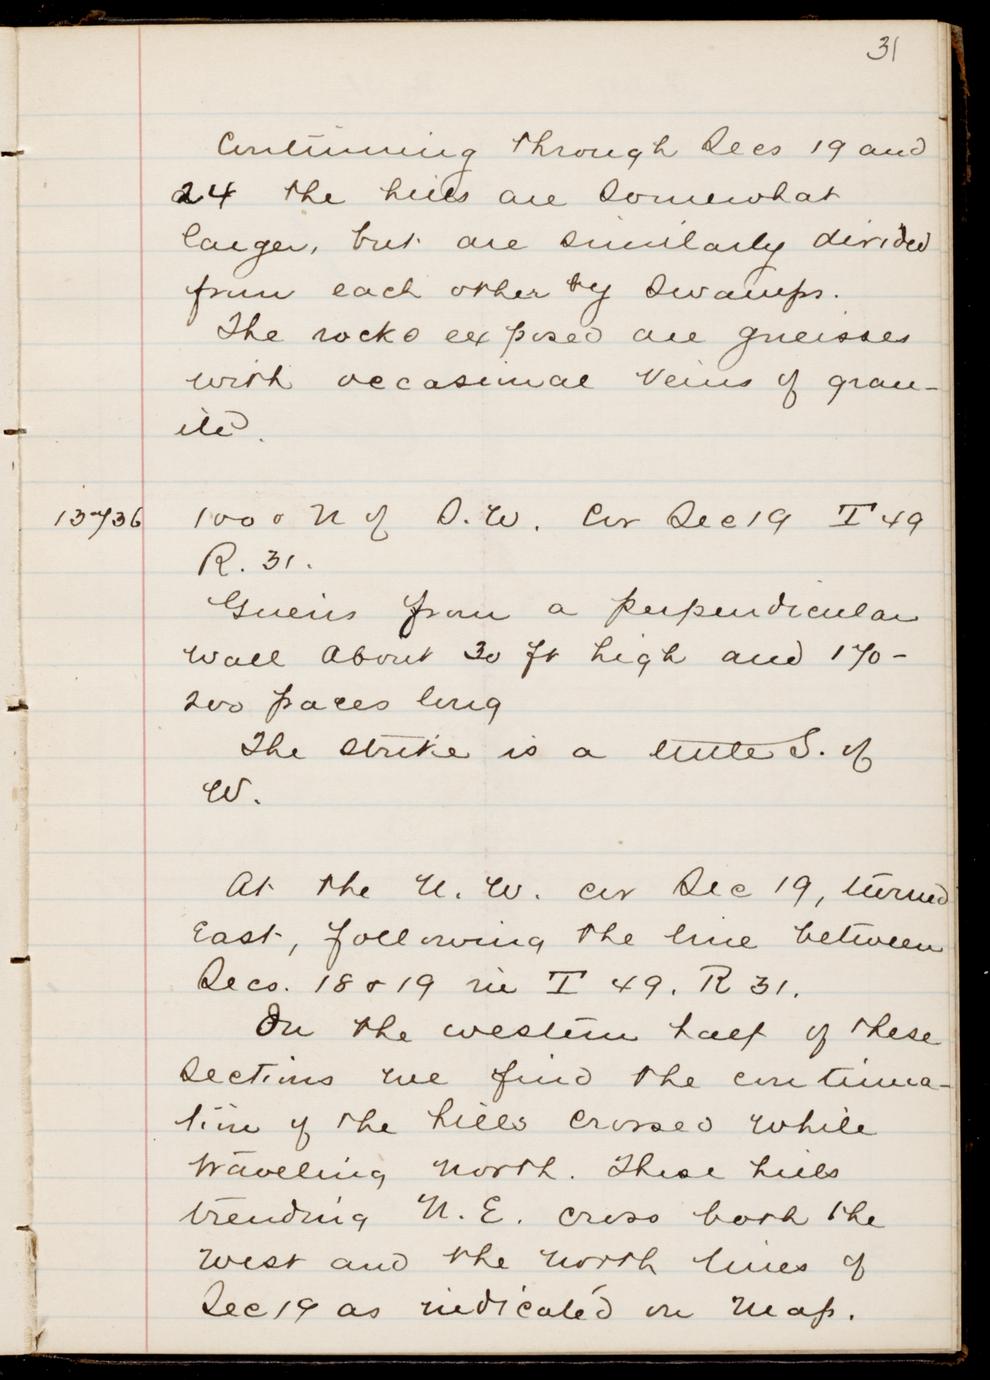 31
Continuing through Secs 19 and
24 the hills are somewhat
larger, but are similarly divided
from each other by swamps.
The rocks exposed are gneisses
with occasional veins of gran-
ite.
1000 N of S.W. Cor Sec 19 T 49
R. 31.
Gneiss from a perpendicular
wall about 30 ft high and 170-
200 paces long
The strike is a little S. of
W.
At the N.W. cor Sec 19, turned
East, following the line between
Secs. 18 & 19 in T 49. R 31.
On the western half of these
sections we find the continua-
tion of the hills crossed while
traveling north. These hills
trending N.E. cross both the
west and the north lines of
Sec 19 as indicated on map.